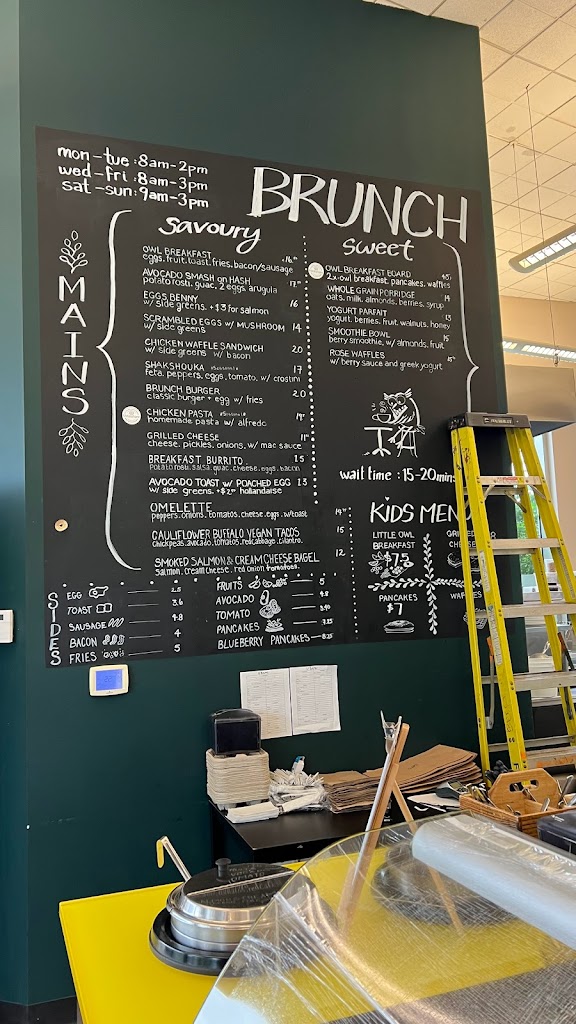 mon-tue: 8am-2pm
wed-fri: 8am-3pm
sat-sun: 9am-3pm
BRUNCH
MAINS
savoury
OWL BREAKFAST
eggs. fruit. toast. fries. bacon/sausage
AVOCADO SMASH on HASH
potato rosti, guac, 2 eggs, arugula
EGGS BENNY 16
w/ side greens. +$3 for salmon
SCRAMBLED EGGS w/ MUSHROOM 14
w/ side greens
CHICKEN WAFFLE SANDWICH 20
w/ side greens w/ bacon
SHAKSHOUKA 17
feta, peppers, eggs, tomato, w/ crostini
BRUNCH BURGER 20
classic burger + egg w/ fries
CHICKEN PASTA
homemade pasta w/ alfredo
GRILLED CHEESE
cheese. pickles. onions, w/ mac sauce
BREAKFAST BURRITO 15
Potato rosti, salsa, guac, cheese, eggs, bacon
AVOCADO TOAST w/ POACHED EGG 13
w/ side greens. hollandaise
OMELETTE
peppers. onions. tomatos. cheese. eggs. w/toast
CAULIFLOWER BUFFALO VEGAN TACOS 15
Chickpeas, avocado, tomatos, red cabbage, cilantro.
SMOKED SALMON & CREAM CHEESE BAGEL 12
Salmon, cream cheese, red onion, tomatoes.
sweet
OWL BREAKFAST BOARD
2x owl breakfast, pancakes, waffles
WHOLE GRAIN PORRIDGE 14
oats, milk, almonds, berries, syrup
YOGURT PARFAIT 13
yogurt, berries, fruit, walnuts, honey
SMOOTHIE BOWL
berry smoothie, w/ almonds, fruit
ROSE WAFFLES
w/ berry sauce and greek yogurt
wait time: 15-20mins
KIDS MENU
LITTLE OWL
BREAKFAST
PANCAKES
$7
SIDES
EGG 2.5
TOAST 3.6
SAUSAGE 4.8
BACON 4
FRIES 5
FRUITS 5
AVOCADO 4.8
TOMATO 3.40
PANCAKES 7.25
BLUEBERRY PANCAKES 8.25